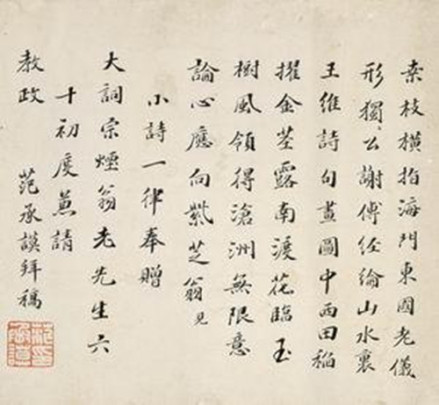 桑枝橫指海門東國老儀
形獨公謝傅經綸山水裏
王維詩句畫圖中西田稻
擢金莖露南渡花臨玉
樹風領得滄洲無限意
論心應向紫芝翁見
小詩一律奉贈
大詞宗煙翁老先生六
十初度兼請
教政 范承謨拜稿